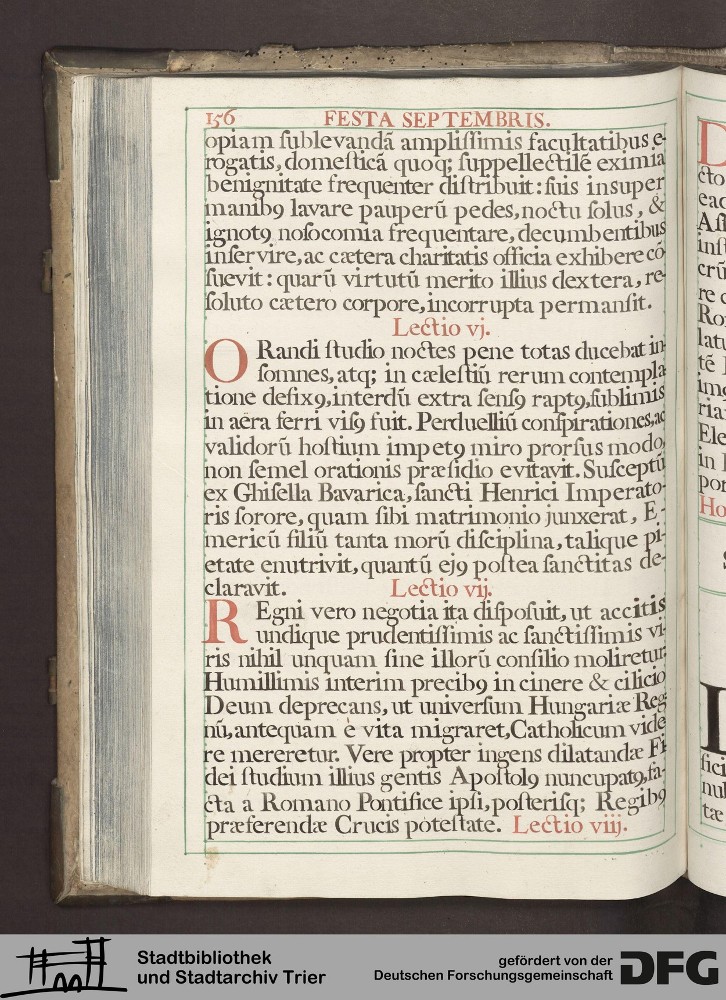 156 FESTA SEPTEMBRIS.
opiam ſublevandā ampliſſimis facultatibus e-
rogatis, domeſticā quoq; ſuppellectilē eximia
benignitate frequenter diſtribuit: ſuis insuper
manib9 lavare pauperū pedes, noctu ſolus, &
ignot9 noſocomia frequentare, decumbentibus
inſervire, ac cætera charitatis officia exhibere cō-
ſuevit: quarū virtutū merito illius dextera, re-
ſoluto cætero corpore, incorrupta permanſit.
Lectio vj.
ORandi ſtudio noctes pene totas ducebat in-
ſomnes, atq; in cæleſtiū rerum contempla-
tione defix9, interdū extra ſenſ9 rapt9, ſublimis
in aëra ferri viſ9 fuit. Perduelliū conſpirationes, ac
validorū hoſtium impet9 miro prorſus modo,
non ſemel orationis præſidio evitavit. Suſceptū
ex Ghiſella Bavarica, ſancti Henrici Imperato-
ris ſorore, quam ſibi matrimonio junxerat, E-
mericū filiū tanta morū diſciplina, talique pi-
etate enutrivit, quantū ej9 poſtea ſanctitas de-
claravit. Lectio vij.
REgni vero negotia ita diſpoſuit, ut accitis
undique prudentiſſimis ac ſanctiſſimis vi-
ris nihil unquam ſine illorū conſilio moliretur.
Humillimis interim precib9 in cinere & cilicio
Deum deprecans, ut univerſum Hungariæ Reg-
nū, antequam è vita migraret, Catholicum vide-
re mereretur. Vere propter ingens dilatandæ Fi-
dei ſtudium illius gentis Apoſtol9 nuncupat9, fa-
cta a Romano Pontifice ipſi, poſteriſq; Regib9
præferendæ Crucis poteſtate. Lectio viij.
Stadtbibliothek
und Stadtarchiv Trier
gefördert von der
Deutschen Forschungsgemeinschaft
DFG